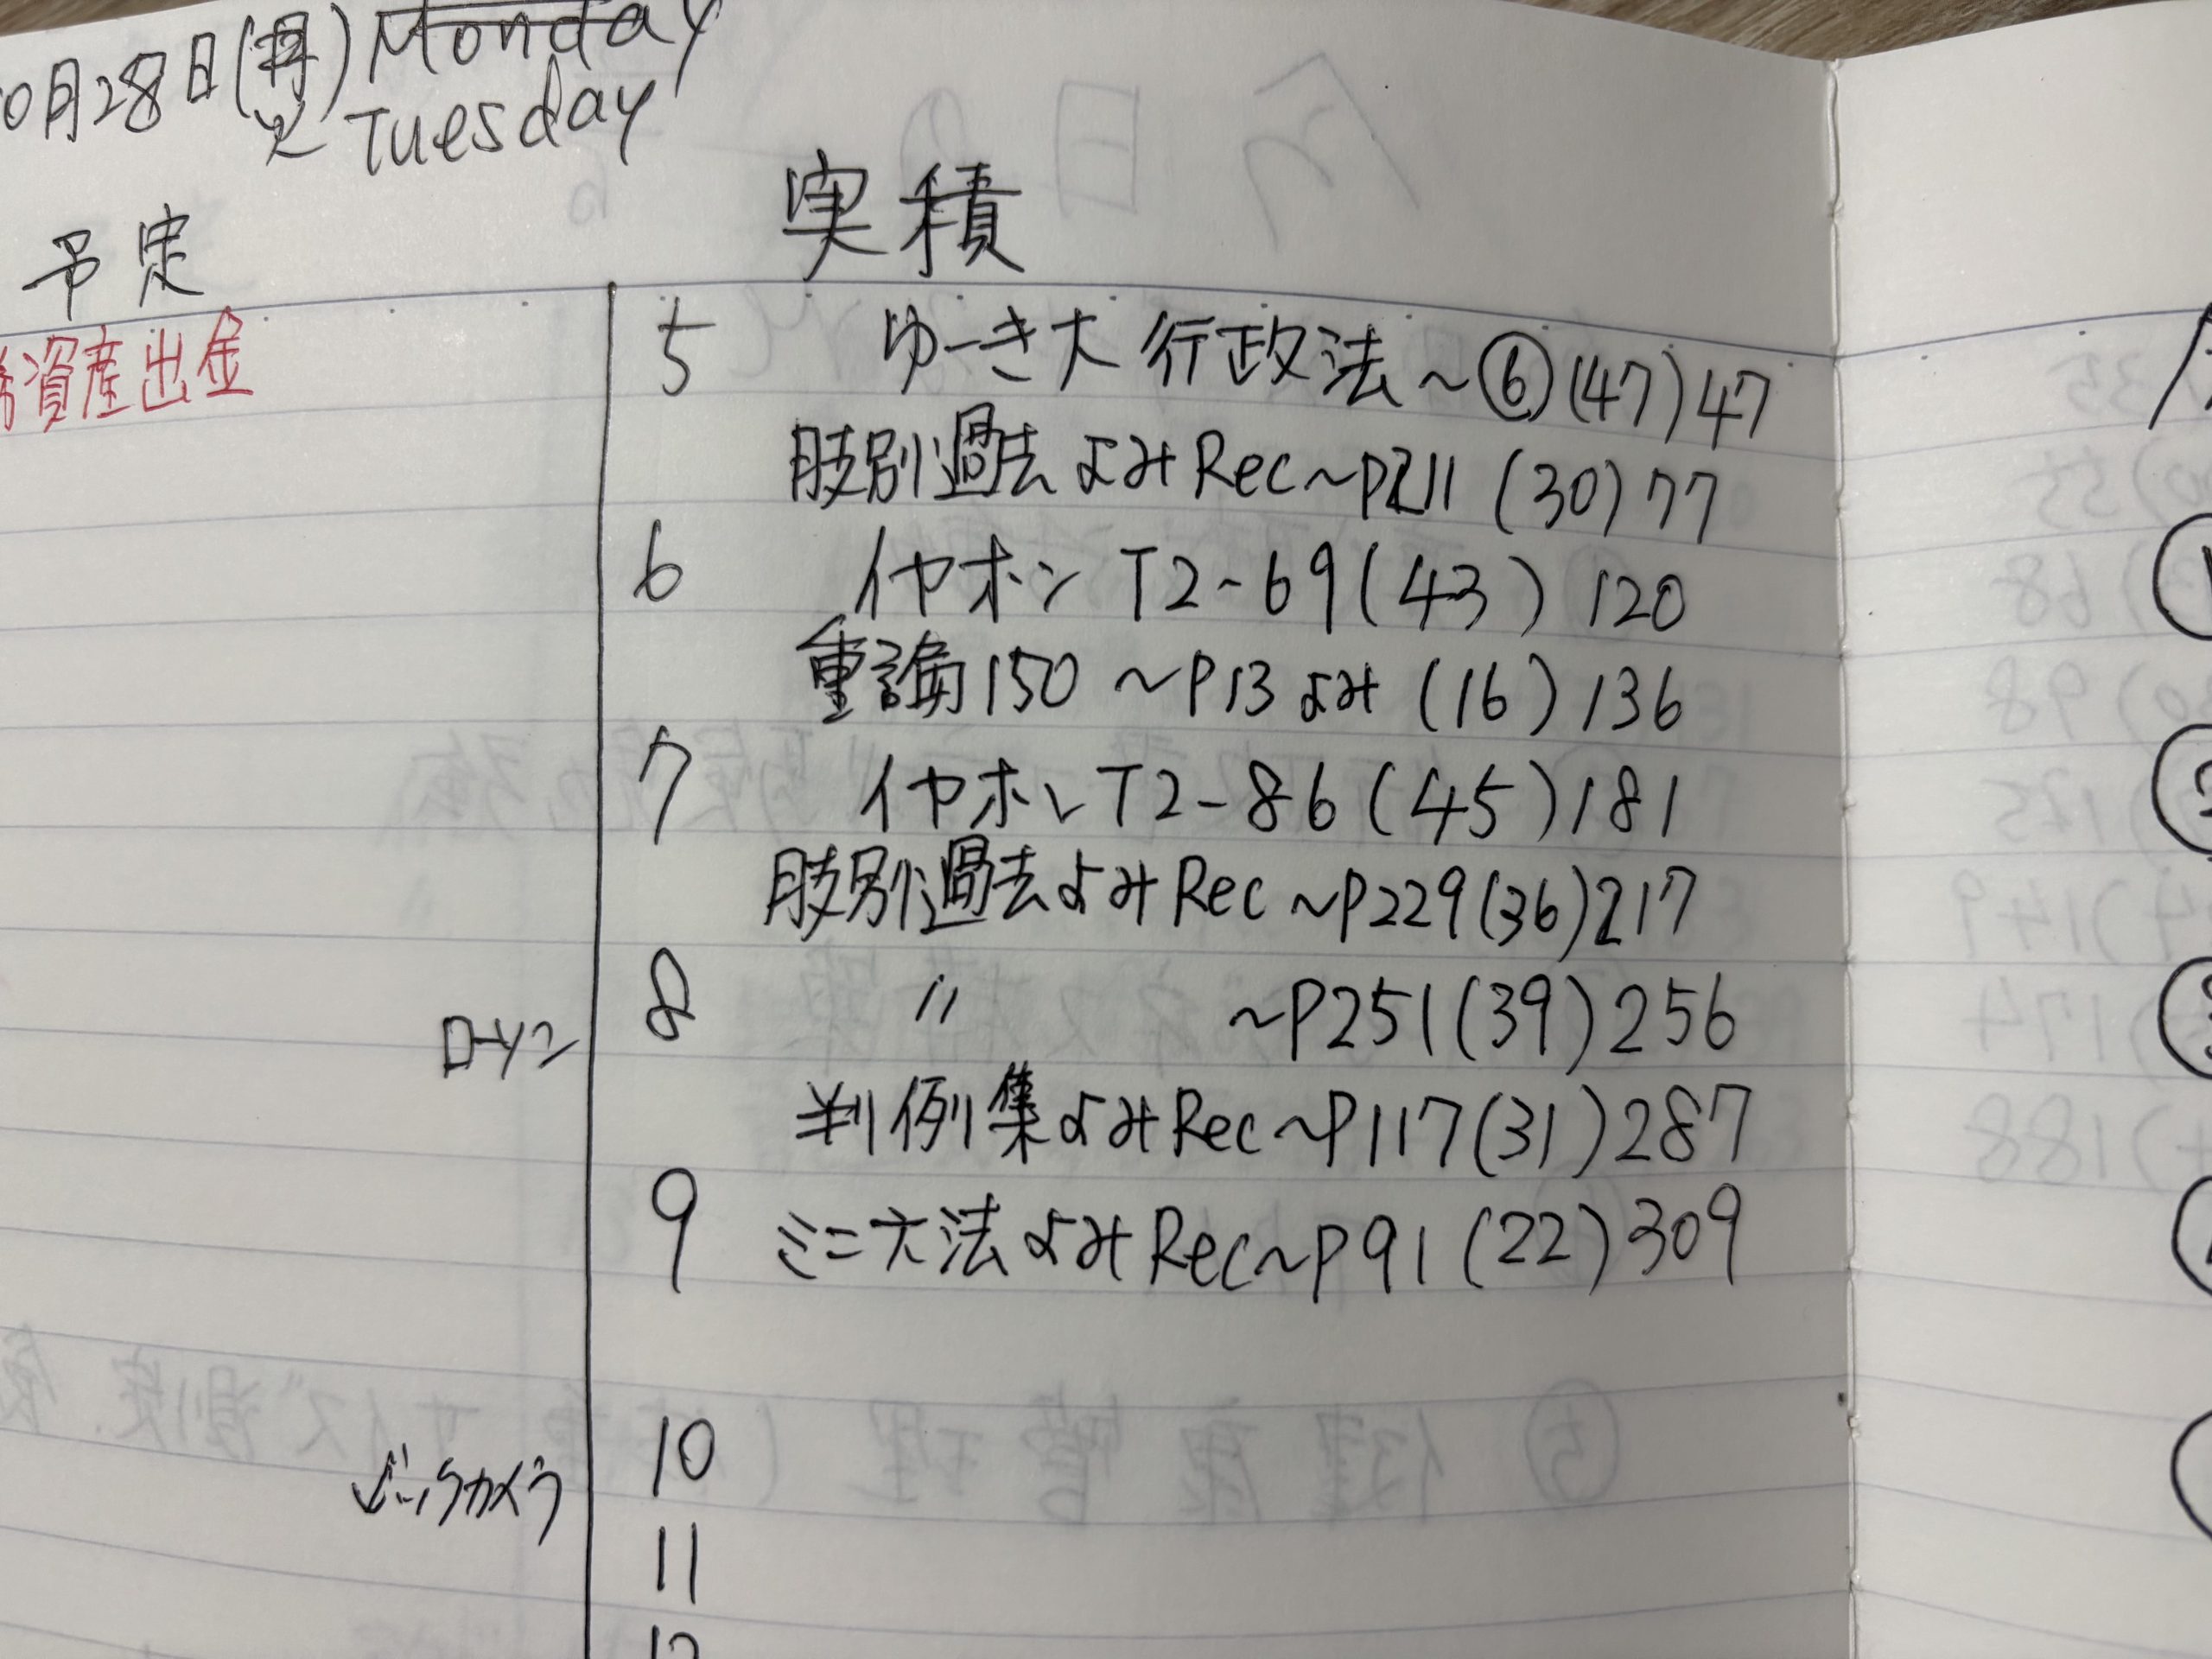 0月28日(月) Monday
火 Tuesday
予定
実積
資産出金
5 ゆーき大 行政法~⑥(47)47
肢別過去よみRec~P211 (30)77
6 イヤホン T2-69(43) 120
重論150 ~P13よみ (16)136
7 イヤホンT2-86(45)181
肢別過去よみRec~P229(36)217
8 〃 ~P251(39)256
ローソン
判例集よみRec~P117(31)287
9 ミニ六法よみRec~P91(22)309
10
ビックカメラ
11
12